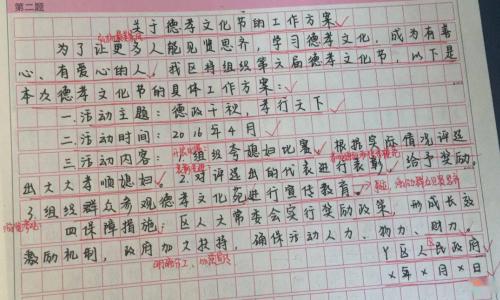 第二题
关于德孝文化节的工作方案
为了让更多人能见贤思齐，学习德孝文化，成为有善
心、有爱心的人，我区特组织第六届德孝文化节，以下是
本次德孝文化节的具体工作方案：
一.活动主题：德政千秋，孝行天下
二.活动时间：2016年4月
三.活动内容：1.组织夸媳妇比赛，根据实际情况评选
出大大孝顺媳妇。2.对评选出的代表进行表彰，给予奖励。
3.组织群众参观德孝文化苑进行宣传教育。
四保障措施：区人大常委会实行奖励政策，形成长效
激励机制，政府加大扶持，确保活动人力、物力、财力。
Y区人民政府
×年×月×日